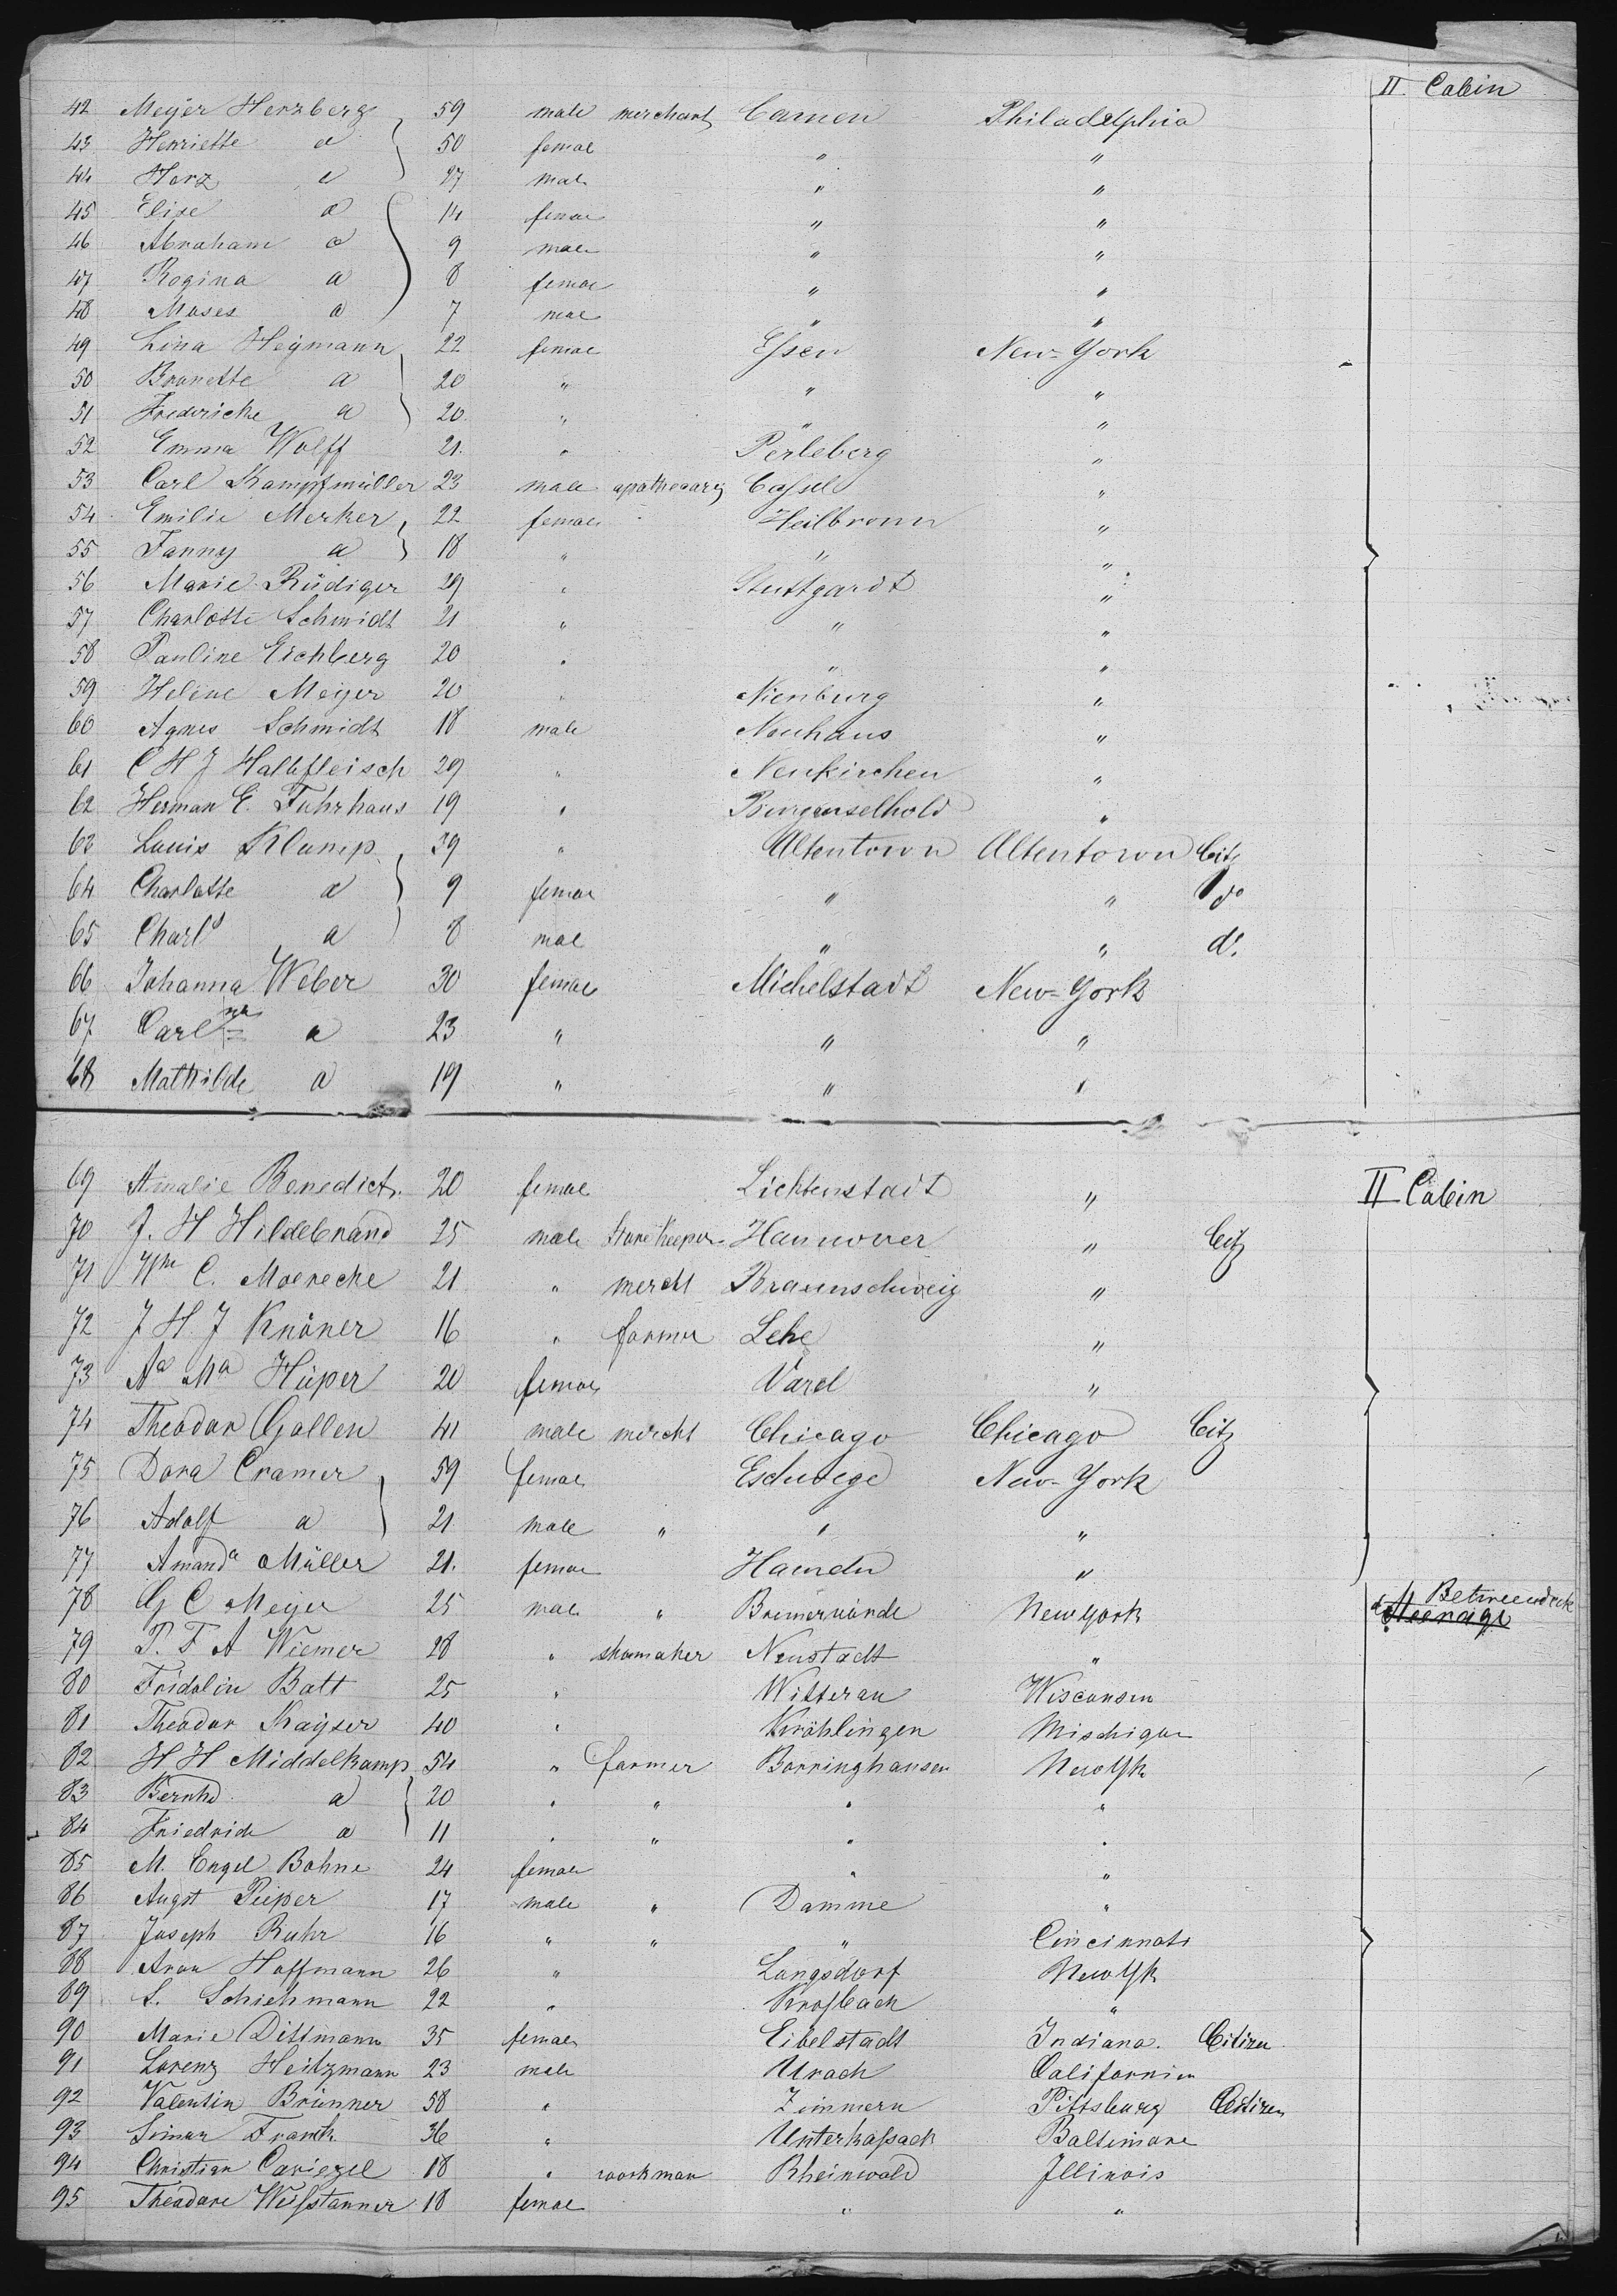 II Cabin
42 Meyer Herzberg 59 male merchant Camen Philadelphia
43 Henriette a 50 femal " "
44 Herz a 27 mal " "
45 Elise a 14 femal " "
46 Abraham a 9 male " "
47 Rogina a 8 femal " "
48 Moses a 7 mal " "
49 Lina Heymann 22 femal Essen New-York
50 Brunette a 20 " " "
51 Fredericke a 20. " " "
52 Emma Wolff 21. " Perleberg "
53 Carl Kampfmüller 23 male apothecary Cassel "
54 Emilie Merker 22 female Heilbronn "
55 Fanny a 18 " " "
56 Marie Rüdiger 29 " Stuttgardt "
57 Charlotte Schmidt 21 " " "
58 Pauline Eichberg 20 " " "
59 Helene Meyer 20 " Nienburg "
60 Agnes Schmidt 18 male Neuhaus "
61 C H J Halbfleisch 29 " Neukirchen "
62 Herman E. Fuhrhaus 19 " "
63 Louis Klump 39 " Altentown Altentown Citz
64 Charlotte a 9 femal " " do
65 Charls a 8 mal " " do
66 Johanna Weber 30 femal Michelstadt New-York
67 Carlna a 23 " " "
68 Mathilde a 19 " " "
69 Amalie Benedict. 20 femal Lichtenstadt " II Cabin
70 J. H Hildebrand 25 male Storekeeper Hannover " Citz
71 Wm C. Moenecke 21 " mercht Braunschweig "
72 J H J Knöner 16 " farmer Lehe "
73 Aa Ma Hüper 20 femal Varel "
74 Theodor Gollen 41 male mercht Chicago Chicago Citz
75 Dora Cramer 59 femal Eschwege New-York
76 Adolf a 21 male " " "
77 Amanda Müller 21. femal Hameln "
78 G C Meyer 25 mal " Bremervörde New York Betweendeck Steerage
79 P. F A Wiemer 28 " shomaker Neustadt "
80 Fridolin Batt 25 " Witterau Wisconsin
81 Theodor Kayser 40 " Kröhlingen Mischigan
82 H H Middelkamp 54 " farmer Borringhausen New Yk
83 Bernhd a 20 " " " "
84 Friedrich a 11 " " " "
85 M. Engel Bohne 24 female " "
86 Augst Pieper 17 male " Damme "
87 Joseph Ruhr 16 " " " Cincinnati
88 Aron Hoffmann 26 " Langsdorf New Yk
89 S. Schiehmann 22 " Krossbach "
90 Marie Dittmann 35 female Eibelstadt Indiana. Citizen
91 Lorenz Heitzmann 23 male Urach Californien
92 Valentin Brünner 58 " Zimmern Pittsburg Citizen
93 Simon Frank 36 " Unterkassach Baltimore
94 Christian Cariezel 18 " workman Rheinwald Illinois
95 Theodore Weisstanner 18 femal " "